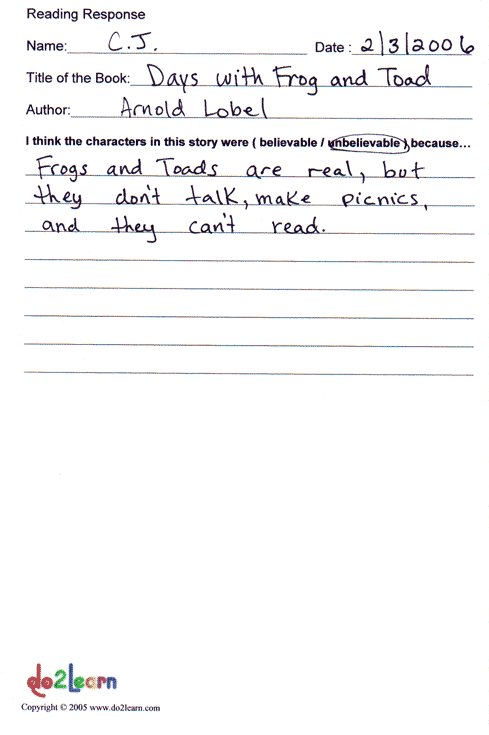 Reading Response
Name: C.J. Date : 2/3/2006
Title of the Book: Days with Frog and Toad
Author: Arnold Lobel
I think the characters in this story were ( believable / unbelievable ) because...
Frogs and Toads are real, but
they don't talk, make picnics,
and they can't read.
do2learn
Copyright © 2005 www.do2learn.com